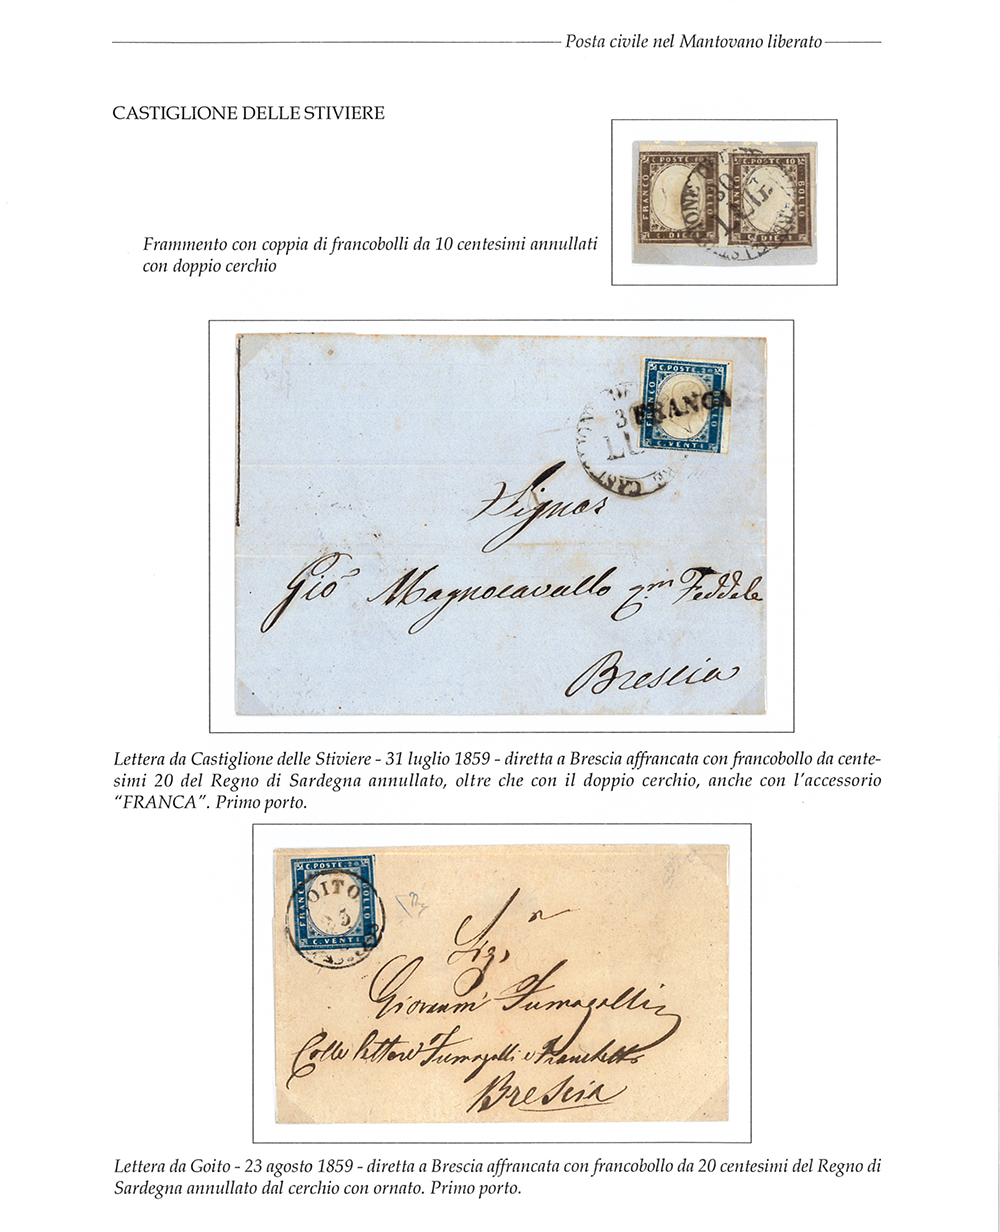 Posta civile nel Mantovano liberato
CASTIGLIONE DELLE STIVIERE
FRANCO
C. POSTE 10
BOLLO
C. DIECI
FRANCO
C. POSTE 10
BOLLO
30
LUG.
Frammento con coppia di francobolli da 10 centesimi annullati
con doppio cerchio
C. POSTE 20
FRANCO
BOLLO
C. VENTI
FRANCA
CAST
Signor
Gio Magnocavallo qm Feddele
Brescia
Lettera da Castiglione delle Stiviere - 31 luglio 1859 - diretta a Brescia affrancata con francobollo da cente-
simi 20 del Regno di Sardegna annullato, oltre che con il doppio cerchio, anche con l'accessorio
“FRANCA”. Primo porto.
C. POSTE 20
FRANCO
BOLLO
C. VENTI
GOITO
Sigr
Giovanni Fumagalli
Colle lettere Fumagalli e Franchetti
Brescia
Lettera da Goito - 23 agosto 1859 - diretta a Brescia affrancata con francobollo da 20 centesimi del Regno di
Sardegna annullato dal cerchio con ornato. Primo porto.